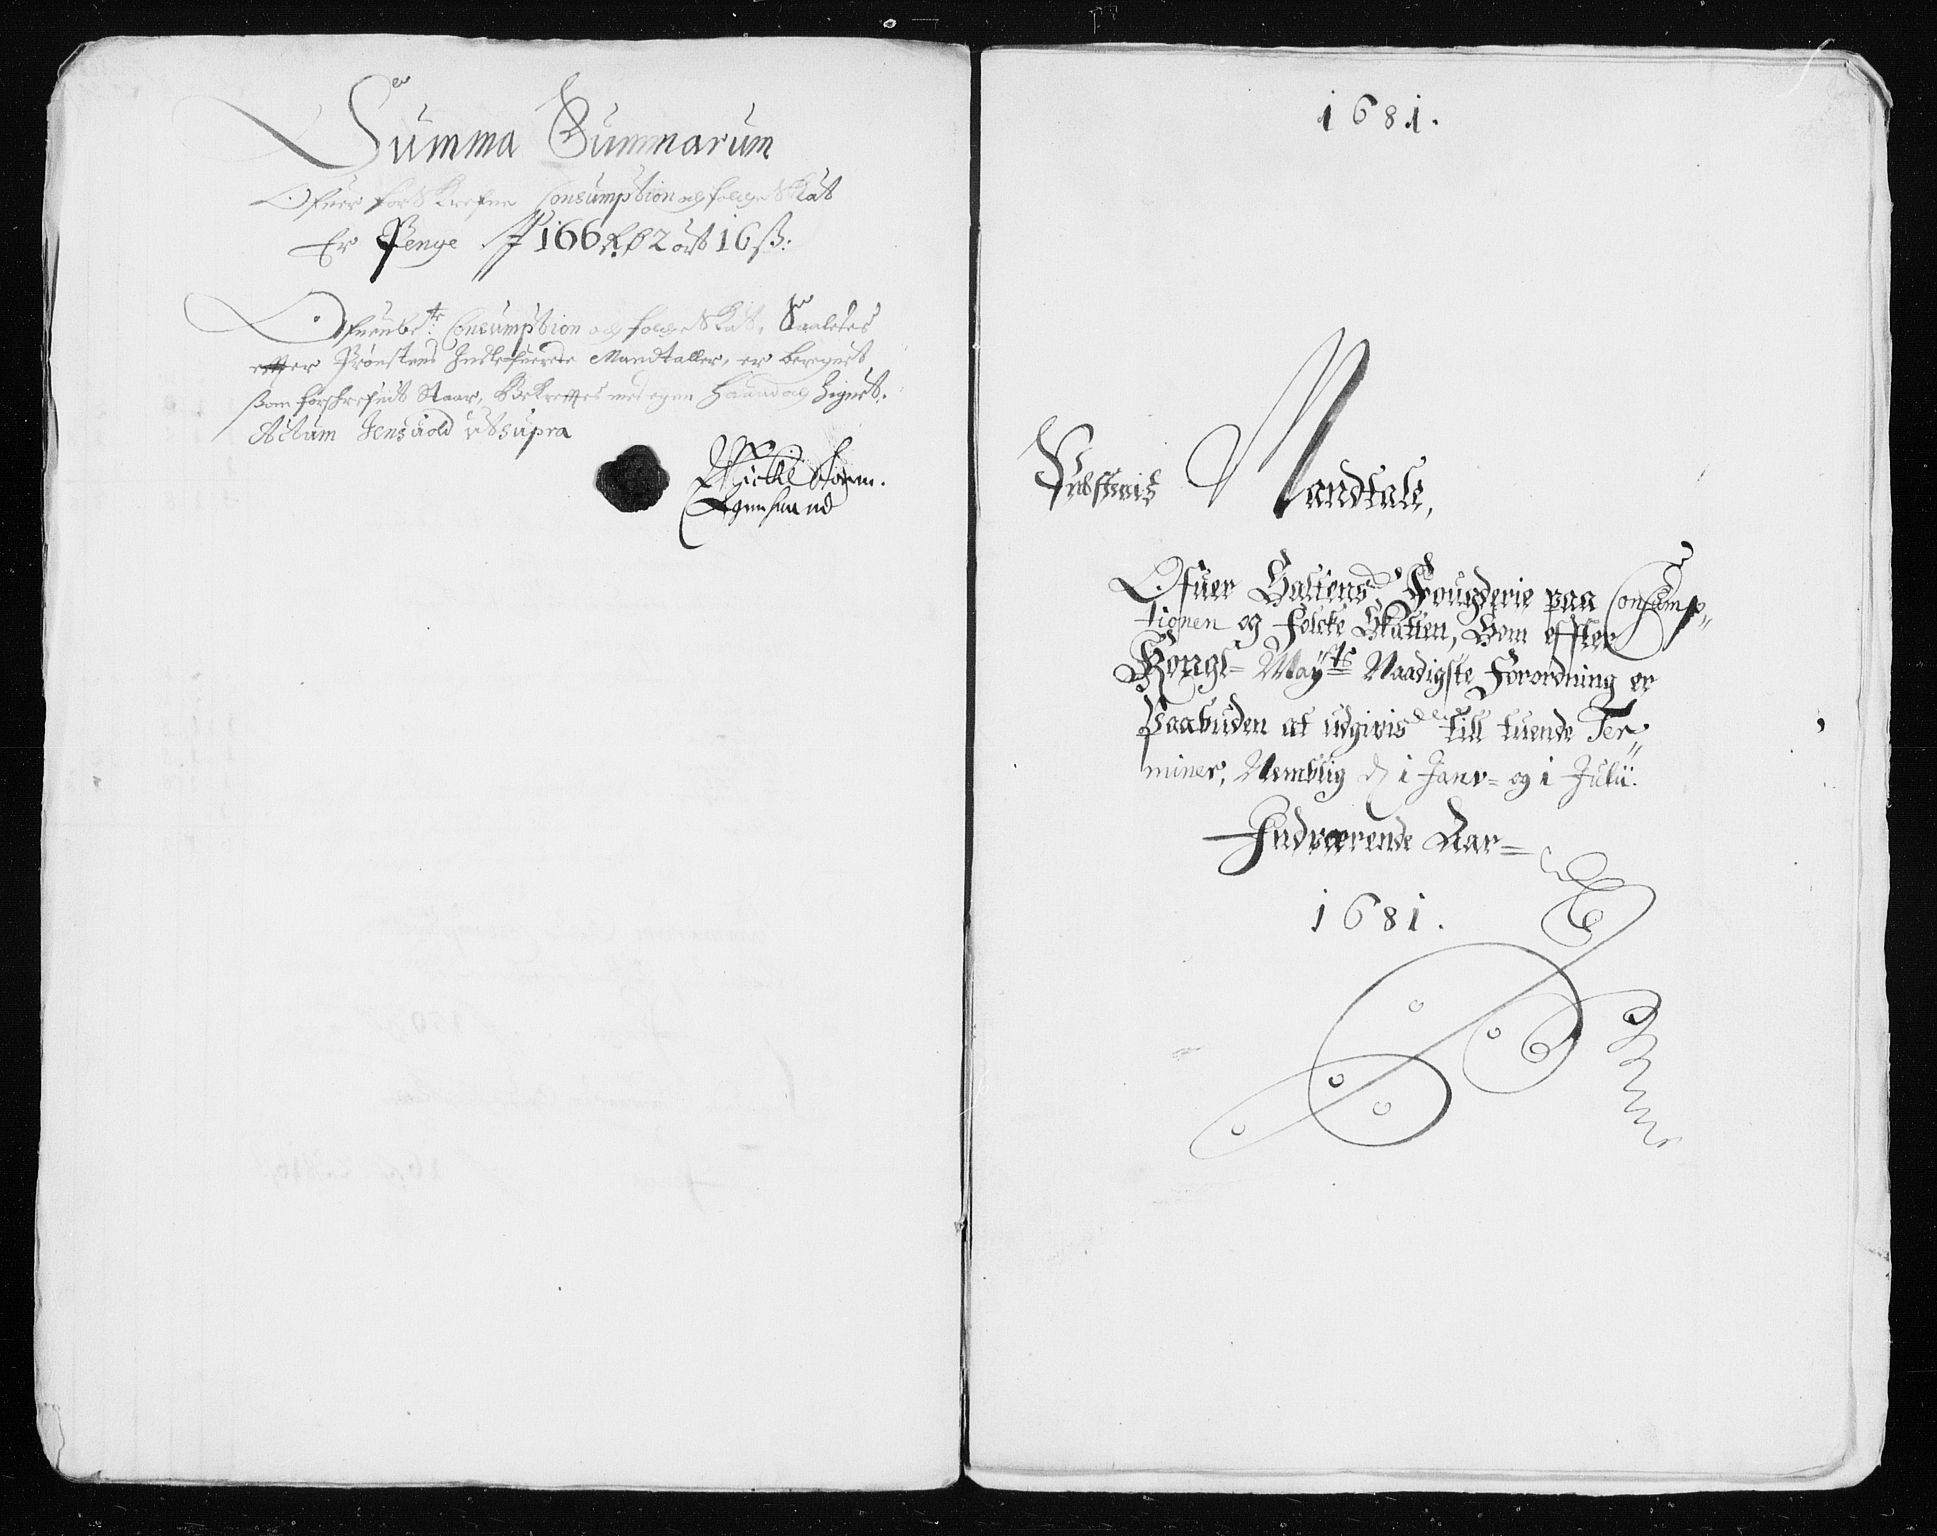 Summa Summarum
Ofuer forSkrefne Consumption og folcheSkat
Er Penge 166 Rd 2 ort 16 ß:
Ofuenbete: Consumption og folcheSkat, Saaledes
effter Proustens Indlefuerede Mandtaller, er beregnet
som forschrefuit Staar, Bekreffter med egen Haand og Zignet.
Actum Jensuold ut supra
Mickel Storm.
Egenhaand
1681.
Prostens Mandtale,
Ofuer Saltens Fougderie paa Consump„
tionen og Folcke Skatten, Som effter
Kongl= Mayts Naadigste Forordning er
Paabuden at udgivis till tuende Ter„
miner, Nemblig d i Janr= og i Julii.
Indværende Aar=
1681.